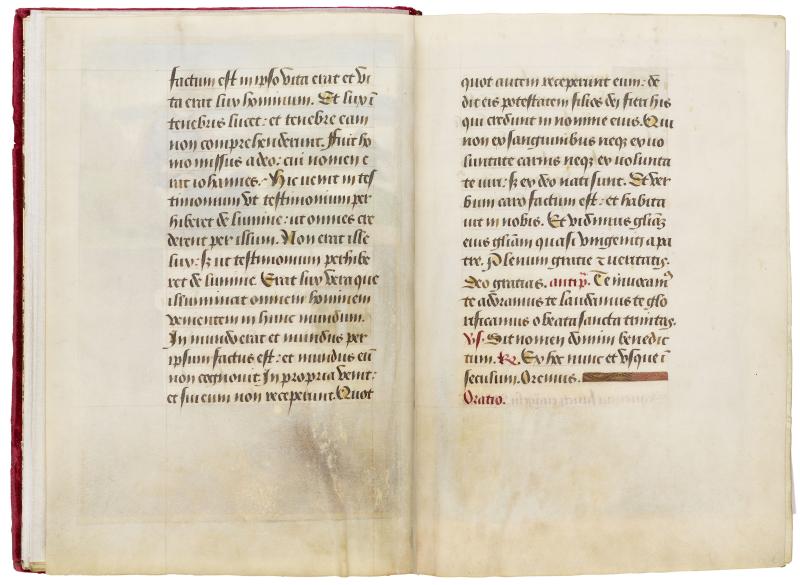 factum est in ipso vita erat et vi
ta erat lux hominum. Et lux ī
tenebris lucet: et tenebre eam
non comprehenderunt. Fuit ho
mo missus a deo: cui nomen e
rat iohannes. Hic venit in tes
timonium vt testimonium per
hiberet de lumine: ut omnes cre
derent per illum. Non erat ille
lux: sꝫ ut testimonium perhibe
ret de lumine. Erat lux vera que
illuminat omnem hominem
venientem in hunc mundum.
In mundo erat et mundus per
ipsum factus est: et mundus eū
non cognouit. In propria venit:
et sui eum non receperunt. Quot
quot autem receperunt eum: de
dit eis potestatem filios dei fieri his
qui credunt in nomine eius. Qui
non ex sanguinibus neqꝫ ex vo
luntate carnis neqꝫ ex volunta
te viri: sꝫ ex deo nati sunt. Et ver
bum caro factum est: et habita
uit in nobis. Et vidimus gliāꝫ
eius gliām quasi vnigeniti a pa
tre. Plenum gratie ⁊ veritatis.
Deo gratias. antipͣ. Te inuocamꝰ
te adoramus te laudamus te glo
rificamus o beata sancta trinitas.
Vs. Sit nomen domini benedic
tum. Rꝫ. Ex hoc nunc et vsque ī
seculum. Oremus.
Oratio.